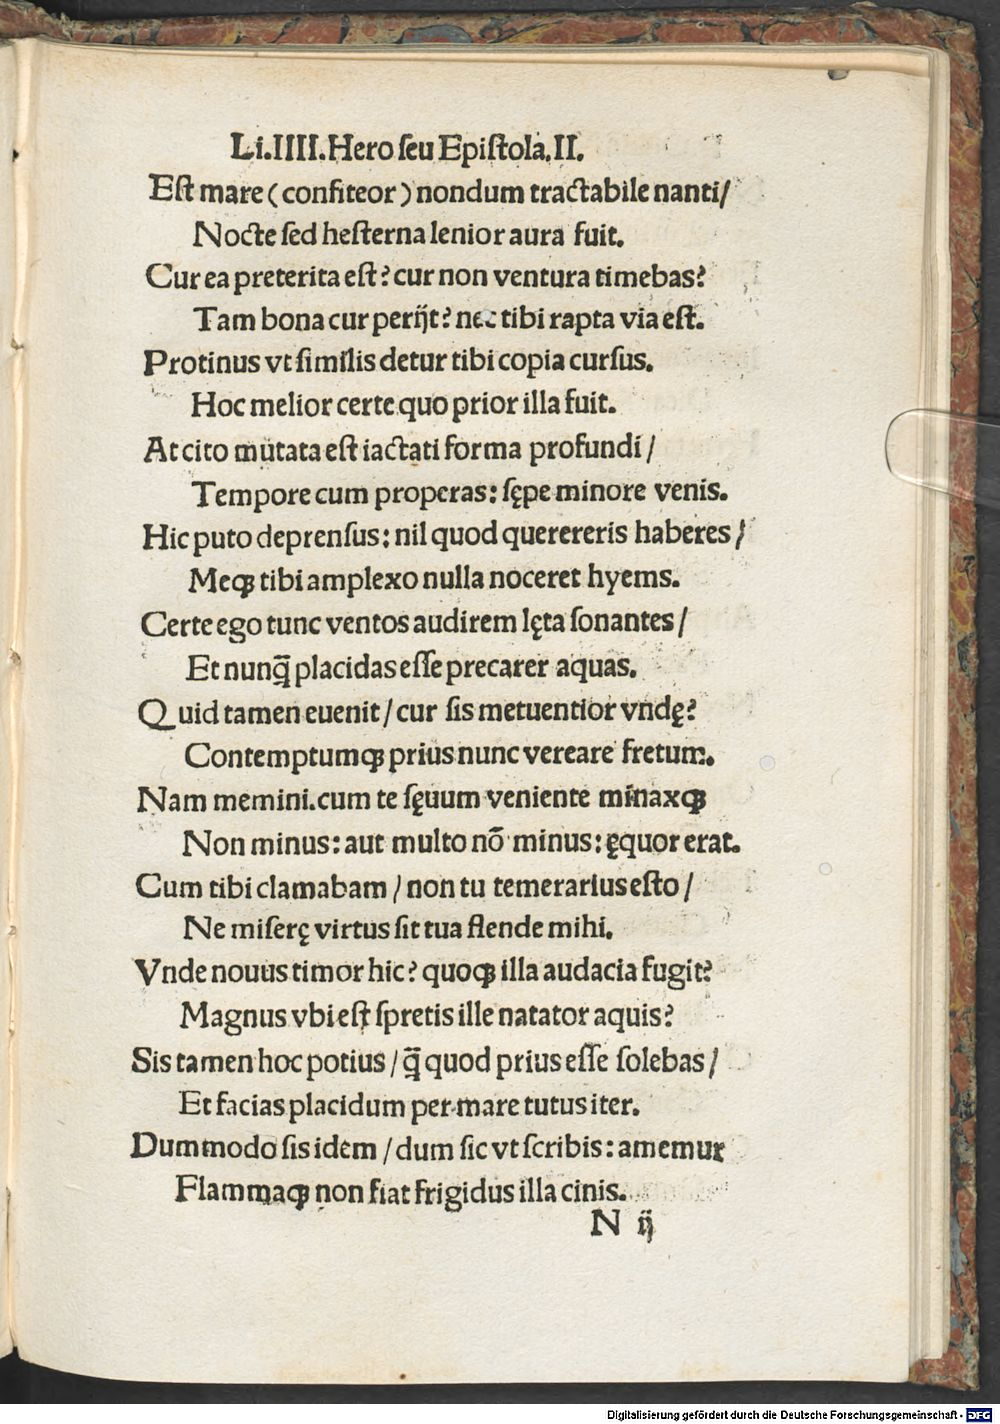 Li.IIII.Hero seu Epistola.II.
Est mare (confiteor) nondum tractabile nanti/
Nocte sed hesterna lenior aura fuit.
Cur ea preterita est? cur non ventura timebas?
Tam bona cur perijt? nec tibi rapta via est.
Protinus vt similis detur tibi copia cursus.
Hoc melior certe quo prior illa fuit.
At cito mutata est iactati forma profundi/
Tempore cum properas: sępe minore venis.
Hic puto deprensus: nil quod querereris haberes/
Meqꝫ tibi amplexo nulla noceret hyems.
Certe ego tunc ventos audirem lęta sonantes/
Et nunq̃ placidas esse precarer aquas.
Quid tamen euenit/cur sis metuentior vndę?
Contemptumqꝫ prius nunc vereare fretum.
Nam memini.cum te sęuum veniente minaxqꝫ
Non minus: aut multo nõ minus: ęquor erat.
Cum tibi clamabam/non tu temerarius esto/
Ne miserę virtus sit tua flende mihi.
Vnde nouus timor hic? quoqꝫ illa audacia fugit?
Magnus vbi est spretis ille natator aquis?
Sis tamen hoc potius/q̃ quod prius esse solebas/
Et facias placidum per mare tutus iter.
Dummodo sis idem/dum sic vt scribis: amemur
Flammaqꝫ non fiat frigidus illa cinis.
N ij
Digitalisierung gefördert durch die Deutsche Forschungsgemeinschaft - DFG